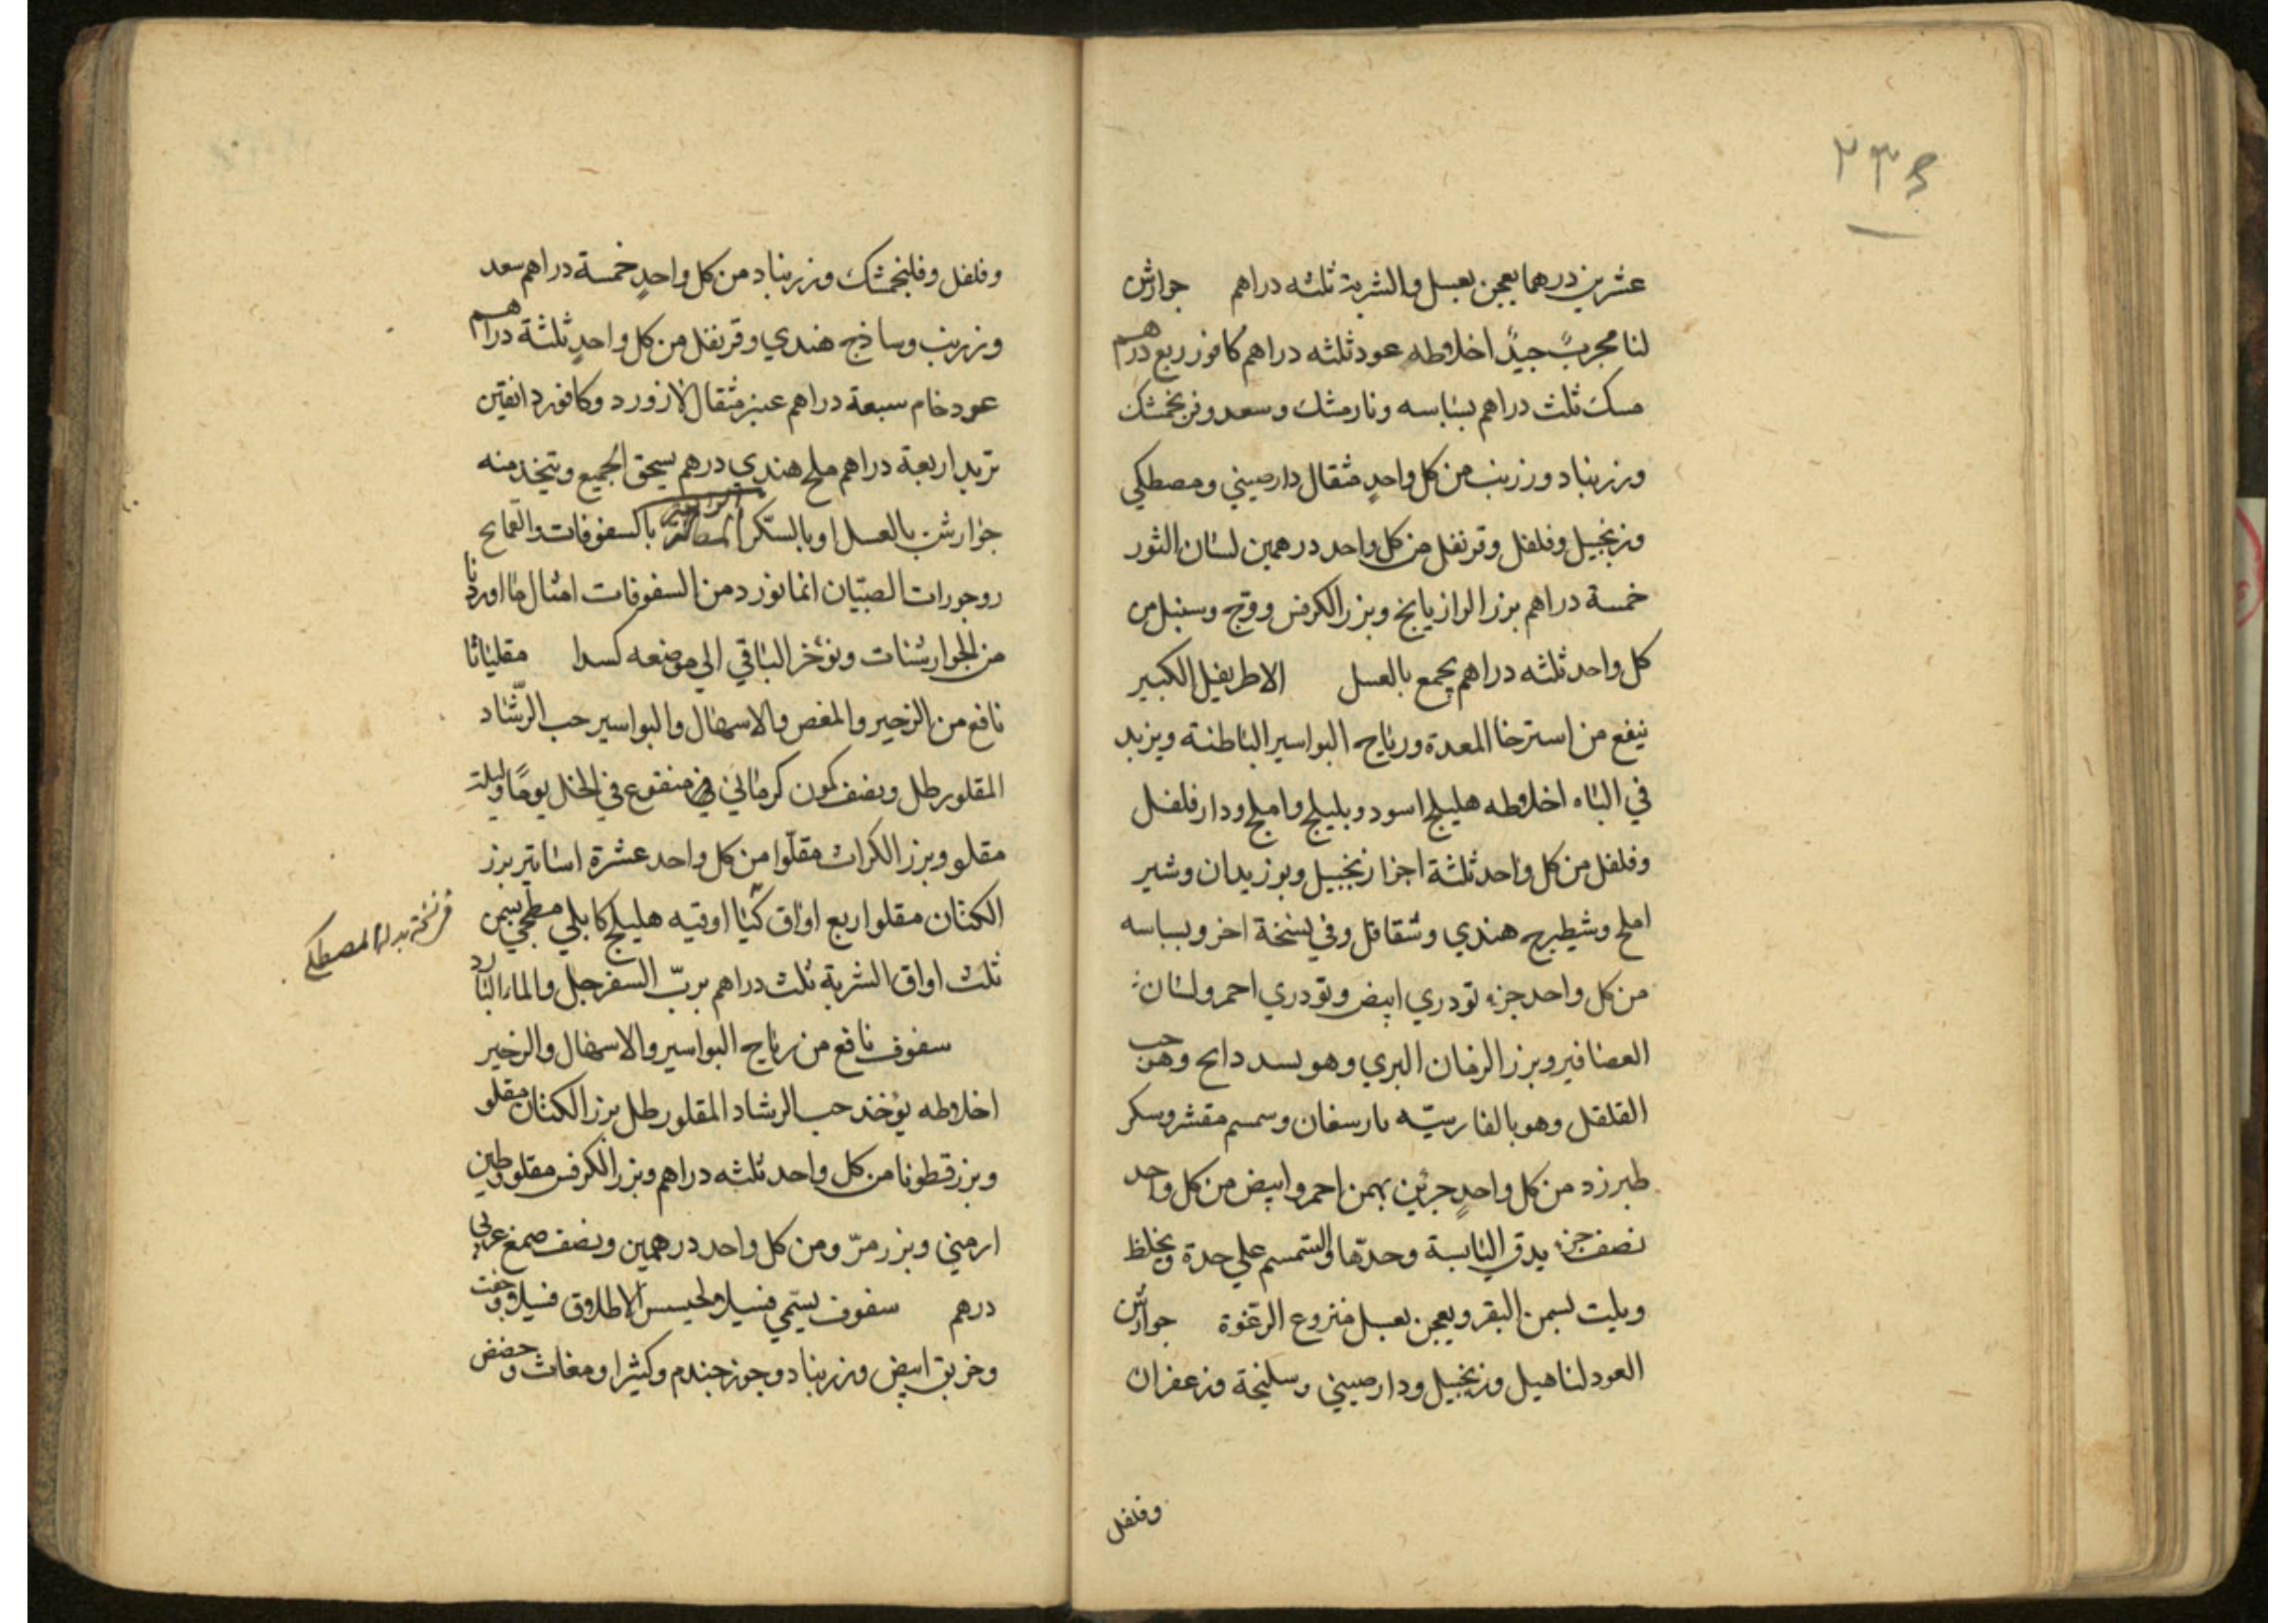 ٢٣٤
عشرين درهما يعجن بعسل والشربة ثلثه دراهم جوارش
لنا مجربٌ جيدٌ اخلاطه عود ثلثه دراهم كافور ربع درهم
مسك ثلث دراهم بسباسه ونارمشك وسعد وفرنجمشك
وزرنباد وزرنب من كل واحدٍ مثقال دارصيني ومصطكي
وزنجبيل وفلفل وقرنفل من كل واحد درهمين لسان الثور
خمسة دراهم بزر الرازيانج وبزر الكرفس ووج وسنبل من
كل واحد ثلثه دراهم يجمع بالعسل الاطريفل الكبير
ينفع من استرخا المعدة ورياح البواسير الباطنة ويزيد
في الباه اخلاطه هليلج اسود وبليلج واملج ودارفلفل
وفلفل من كل واحد ثلثة اجزا زنجبيل وبوزيدان وشير
املج وشيطرج هندي وشقاقل وفي نسخة اخر وبسباسه
من كل واحد جزء تودري ابيض وتودري احمر ولسان
العصافير وبزر الرمان البري وهو بسد دانج وهو حب
القلقل وهو بالفارسيّه مارسفان وسمسم مقشر وسكر
طبرزد من كل واحدٍ جزئين بهمن احمر وابيض من كل واحد
نصف جزء يدق اليابسة وحدّها والسّمسم علي حدة ويخلط
ويلت بسمن البقر ويعجن بعسل منزوع الرّغوة جوارش
العود لنا هيل وزنجبيل ودارصيني وسليخة وزعفران
وفلفل
وفلفل وفلنجمشك وزرنباد من كل واحدٍ خمسة دراهم سعد
وزرنب وساذج هندي وقرنفل من كل واحدٍ ثلثة دراهم
عود خام سبعة دراهم عنبر مثقال لازورد وكافور دانقين
تربد اربعة دراهم ملح هندي درهم يسحق الجميع ويتخذ منه
جوارشن بالعسل او بالسّكر السفوفات والقمايح
ووجورات الصبيان انما نورد من السفوفات امثال ما اوردنا
من الجوارشنات ونؤخر الباقي الي موضعه كسدا مقلياثا
نافع من الزحير والمغص والاسهال والبواسير حب الرّشاد
المقلو رطل ونصف كمون كرماني منقوع في الخل يومًا وليلة
مقلو وبزر الكراث مقلّوا من كل واحد عشرة اساتير بزر
الكتان مقلوا ربع اواق كيا اوقيه هليلج كابلي مطجن بسمن
ثلث اواق الشربة ثلث دراهم بربّ السفرجل والماء البارد
سفوف نافع من رياح البواسير والاسهال والزحير
اخلاطه يؤخذ حب الرشاد المقلو رطل بزر الكتان مقلو
وبزر قطونا من كل واحد ثلثه دراهم وبزر الكرفس مقلو وطين
ارمني وبزر مرّ ومن كل واحد درهمين ونصف صمغ عربي
درهم سفوف يسّمي
وخربق ابيض وزرنباد وجوز جندم وكثيرا ومغاث وحضض
في نسخة بدلها المصطكي